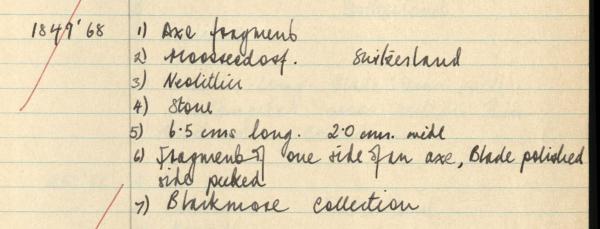 1849'68 1) Axe fragment
2) Moosseedorf. Switzerland
3) Neolithic
4) Stone
5) 6.5 cms long. 2.0 cms. wide
6) Fragment of one side of an axe, Blade polished
side pecked
7) Blackmore Collection